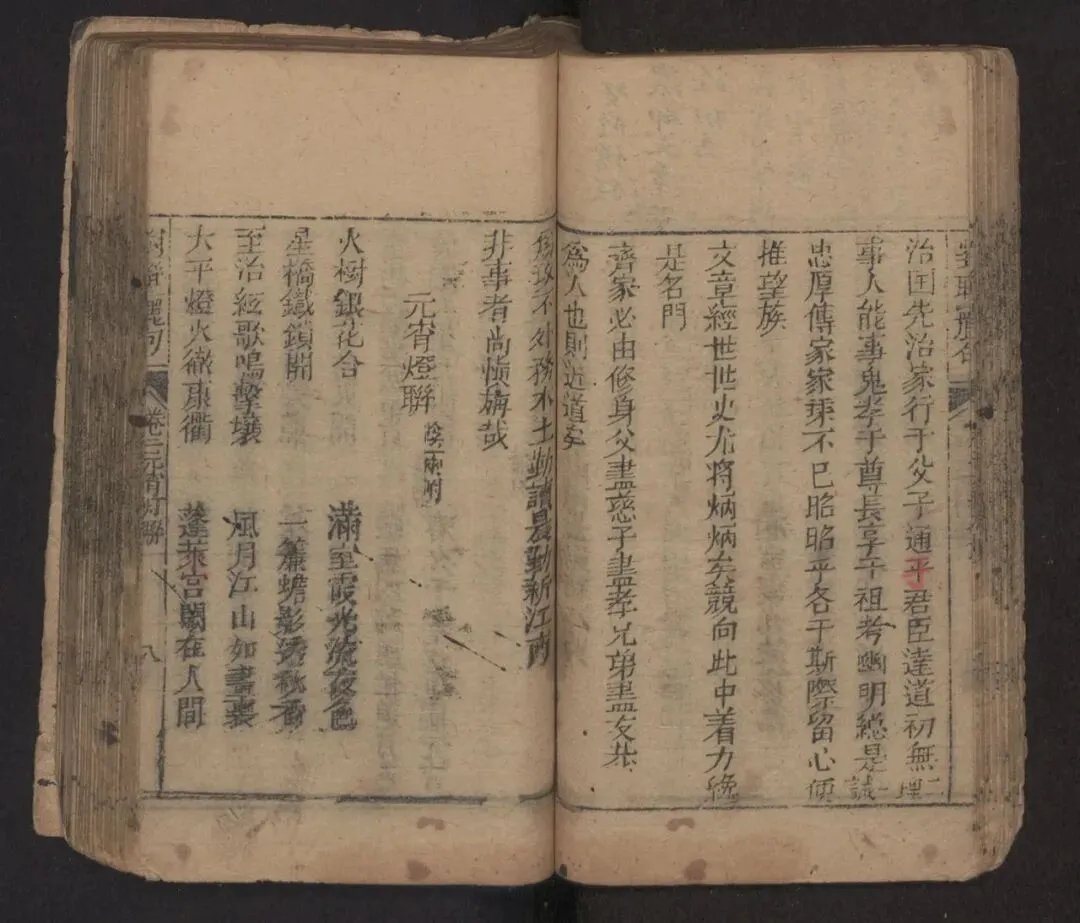 治国先治家行于父子通乎君臣達道初無二理
事人能事鬼孝于尊長享于祖考幽明總是一誠
忠厚傳家家乘不已昭昭乎各于斯際留心便
推望族
文章經世世史尤將炳炳矣競向此中着力俛
是名門
齊家必由修身父盡慈子盡孝兄弟盡友恭
為人也則近道矣
不外務水土勤讀晨勤新江南
非事者尚慎旃哉
元宵燈聯
火樹銀花合
滿堂霞光流夜色
星橋鐵鎖開
一簾蟾影透秋香
至治絃歌鳴擊壤
風月江山如畫裏
太平燈火徹康衢
蓬萊宮闕在人間
卷三元宵燈聯
八